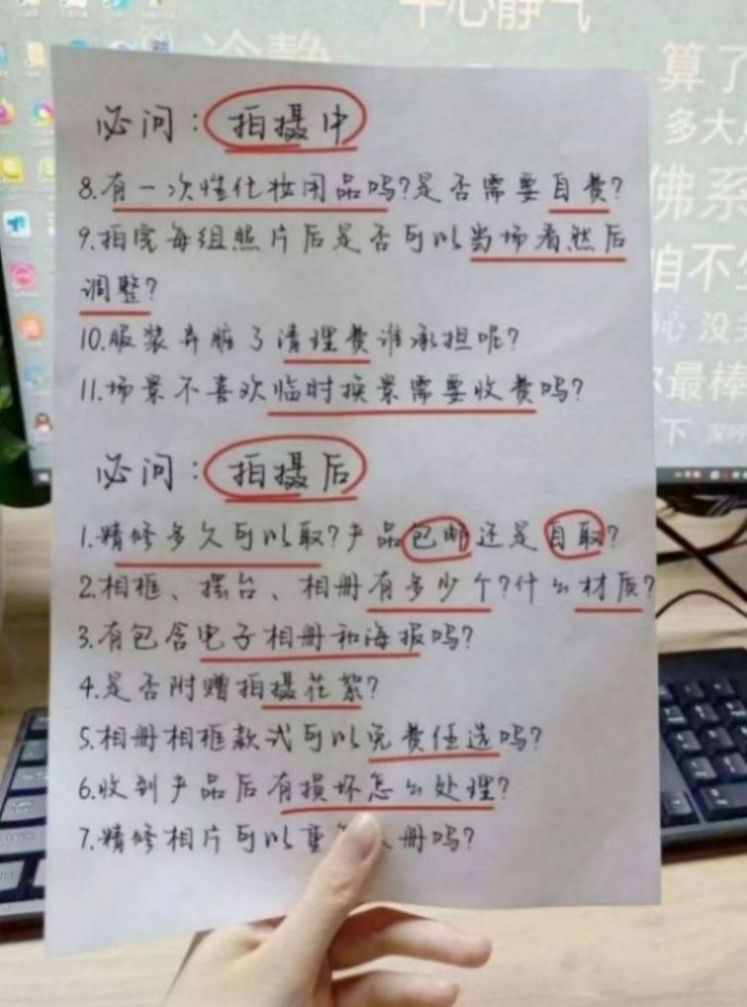 平心静气
冷静
算了
多大
佛系
咱不
心 没
最棒
下
必问:拍摄中
8.有一次性化妆用品吗?是否需要自费?
9.拍完每组照片后是否可以当场看然后
调整?
10.服装弄脏了清理费谁承担呢?
11.场景不喜欢临时换景需要收费吗?
必问:拍摄后
1.精修多久可以取?产品包邮还是自取?
2.相框、摆台、相册有多少个?什么材质?
3.有包含电子相册和海报吗?
4.是否附赠拍摄花絮?
5.相册相框款式可以免费任选吗?
6.收到产品后有损坏怎么处理?
7.精修相片可以重 入册吗?